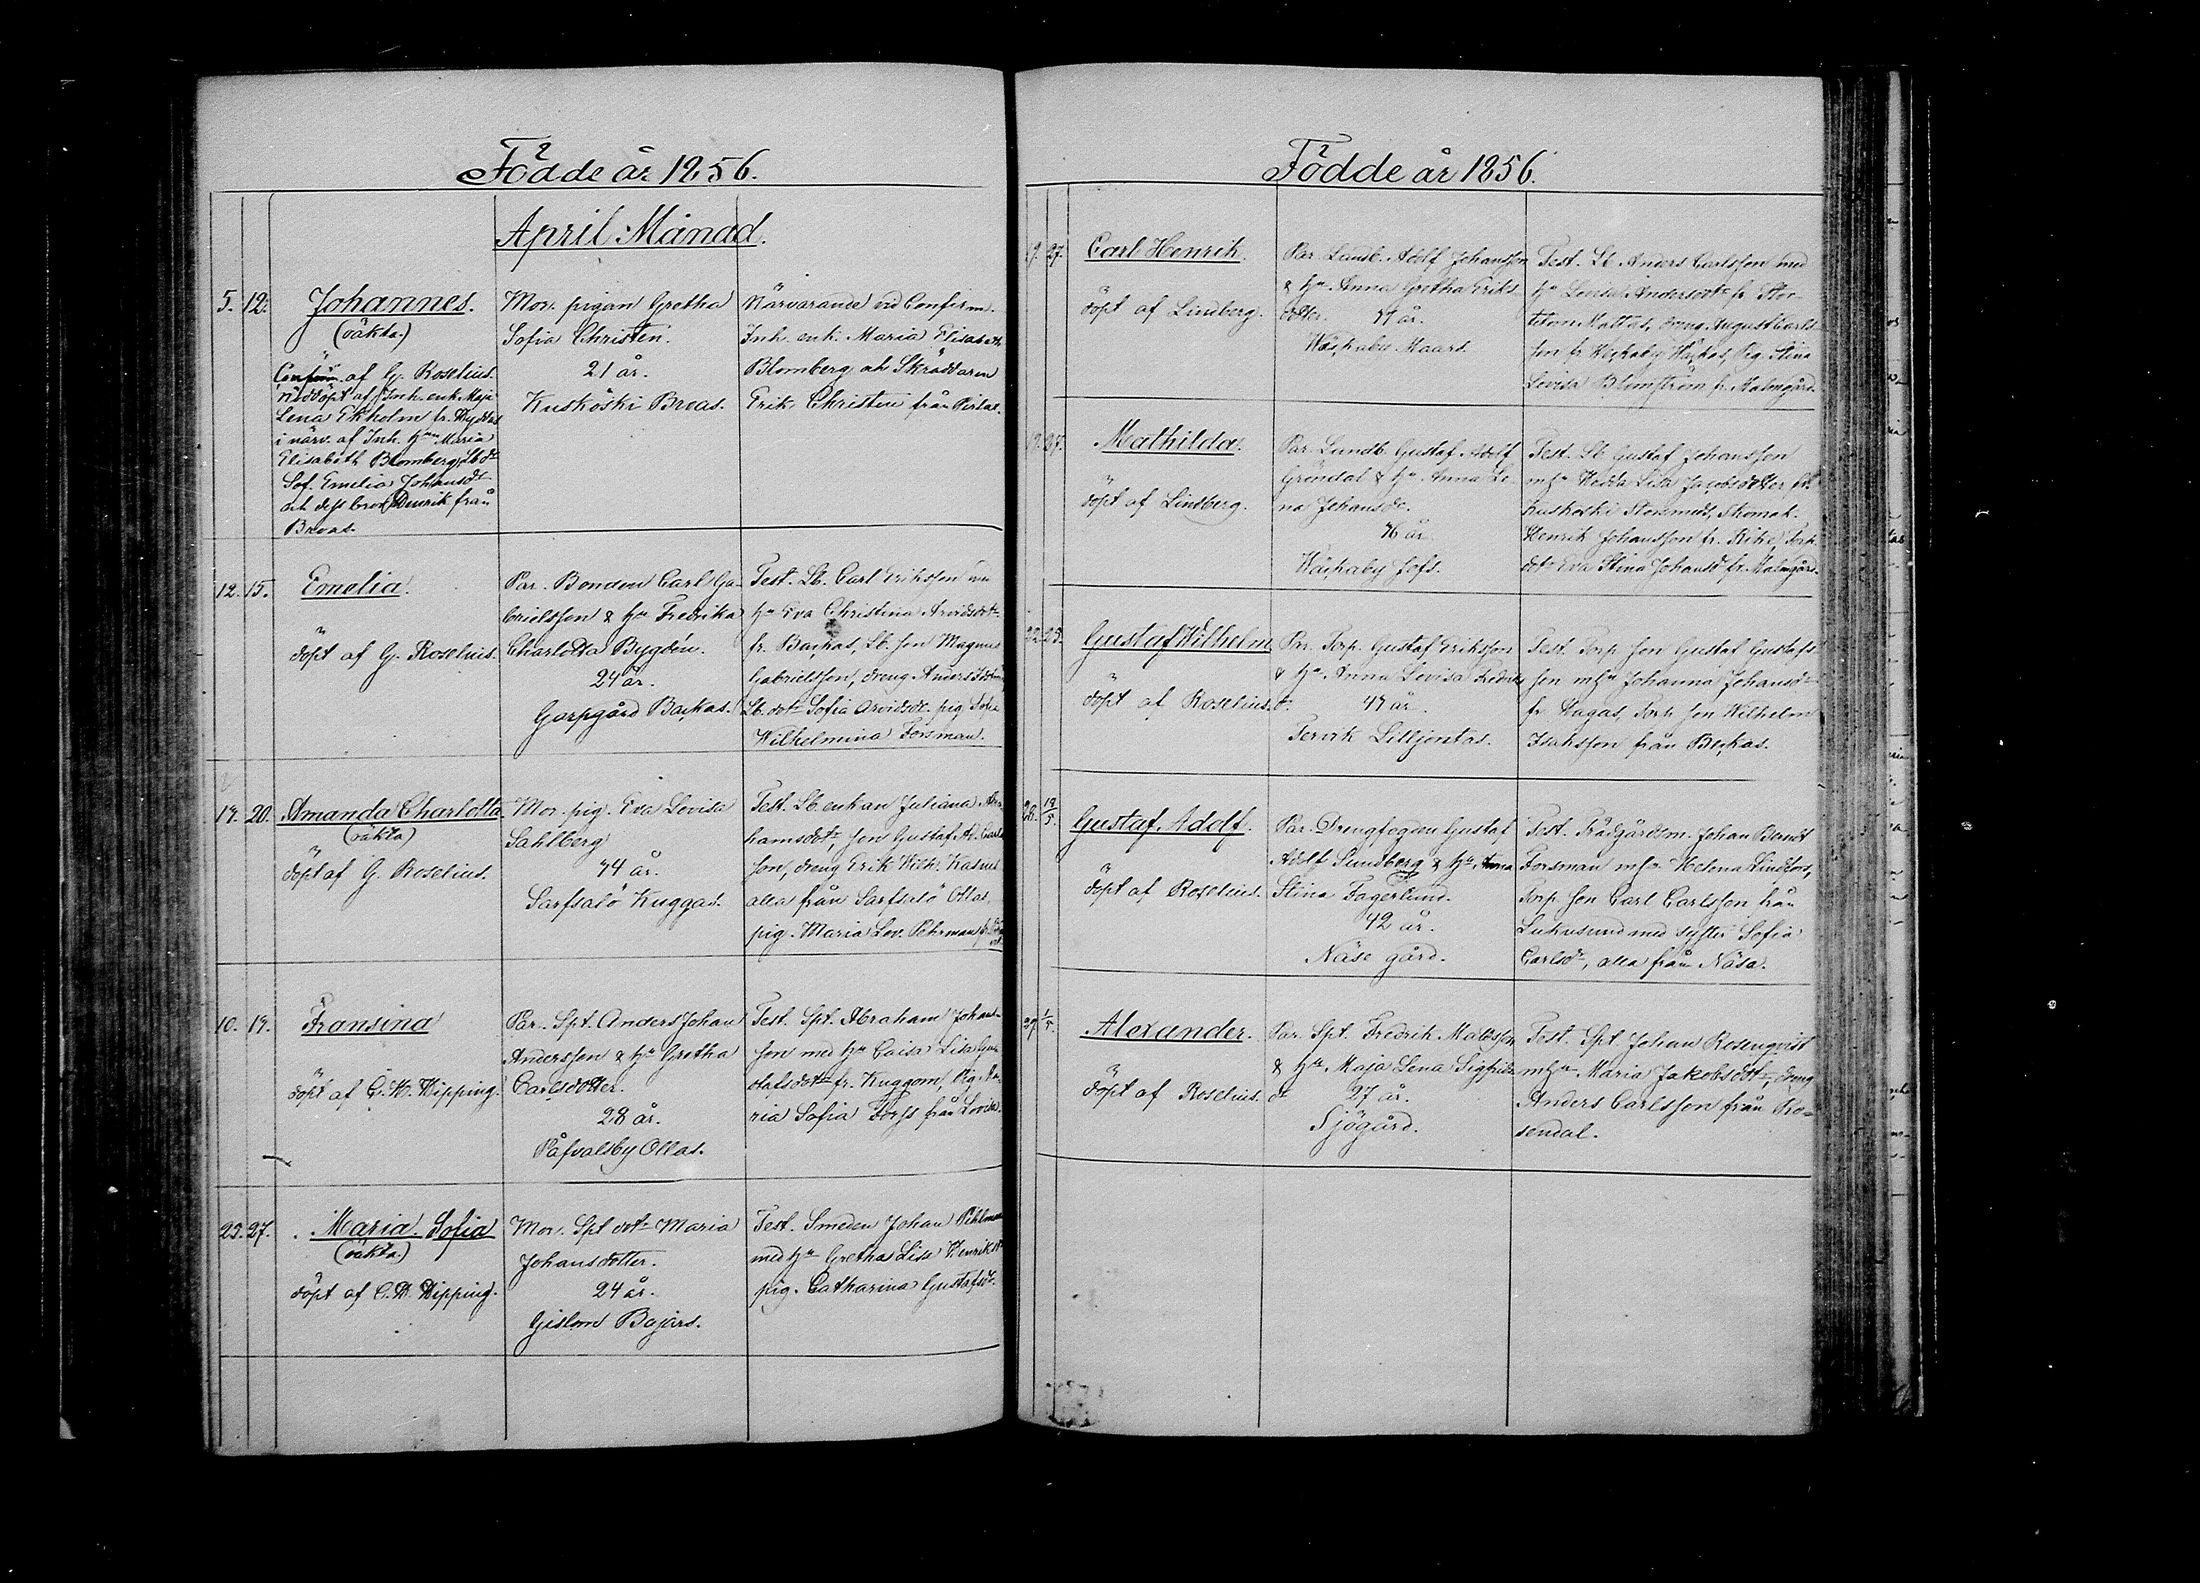 Födde år 1856.
April Månad.
5. 12. Johannes.
(oäkta.)
Confirm. af G. Roselius.
nöddöpt af Inh. enk. Maja
Lena Ekholm fr.
i närv. af Inh. hu Maria
Elisabeth Blomberg, Lb. dr
Sof. Emelia Johansdr
och dess bror Henrik från
Broas.
Mor. pigan Gretha
Sofia Christen.
21 år.
Kuskoski Broas.
Närvarande vid Confirm.
Inh. enk. Maria Elisabeth
Blomberg och Skräddaren
Erik Christen från Pirlas.
12. 15. Emelia.
döpt af G. Roselius.
Par. Bonden Carl Ga-
brielsson & hu Fredrika
Charlotta Bygdén.
24 år.
Garpgård Backas.
Test. Lb. Carl Eriksson
hu Eva Christina Arvidsdotr
fr. Backas, Lb. son Magnus
Gabrielsson, dreng Anders
Lb. dotr Sofia Arvidsdr. pig. Sofia
Wilhelmina Forsman.
17. 20. Amanda Charlotta
(oäkta)
döpt af G. Roselius.
Mor. pig. Eva Lovisa
Sahlberg
44 år.
Sarfsalö Kuggas.
Test. Lb. enkan Juliana Abra-
hamsdotr, son Gustaf Ad. Carls-
son, dreng Erik Wilh.
alla från Sarfsalö Ollas,
pig. Maria Lov. Pehrman
10. 19. Fransina
döpt af C. W. Wipping.
Par. Spt. Anders Johan
Andersson & hu Gretha
Carlsdotter.
28 år.
Påfvalsby Ollas.
Test. Spt. Abraham Johans-
son med hu Caisa Lisa Gus-
tafsdotr fr. Kuggom, Pig. Ma-
ria Sofia Forss från Lovisa.
25. 27. Maria Sofia
(oäkta.)
döpt af C. W. Wipping.
Mor. Spt dotr Maria
Johansdotter.
24 år.
Gislom Bajars.
Test. Smeden Johan Pihlman
med hu Gretha Lisa Henriksdr
pig. Catharina Gustafsdr.
Födde år 1856.
19. 27. Carl Henrik.
döpt af Lindberg.
Par. Landb. Adolf Johansson
& hu Anna Gretha Eriks-
dotter. 41 år.
Wäckaby Maars.
Test. Lb. Anders Carlsson med
hu Lovisa Andersdotr fr.
Mattas, dreng August Carls-
son fr. Wäckaby Pig. Stina
Lovisa Blomström fr. Malmgård.
27. Mathilda.
döpt af Lindberg.
Par. Landb. Gustaf Adolf
Gröndal & hu Anna Le-
na Johansdr.
46 år
Wäckaby Jofs.
Test. Lb. Gustaf Johansson
m hu Hedda Lisa Jacobsdotter fr.
Kuskoski Skomak.
Henrik Johansson fr. Torp.
dotr Eva Stina Johansdr fr. Malmgård.
22. 25. Gustaf Wilhelm
döpt af Roselius.
Par. Torp. Gustaf Eriksson
& hu Anna Lovisa Fredriks
dr 41 år.
Tervik Lilljentas.
Test. Torp. son Gustaf Gustafs-
son m hu Johanna Johansdr
fr. Hagas, Torp. son Wilhelm
Isaksson från Beckas.
26. 18/5. Gustaf Adolf.
döpt af Roselius.
Par. Drengfogden Gustaf
Adolf Sundberg & hu Anna
Stina Fagerlund.
42 år.
Näse gård.
Test. Trädgårdsm. Johan Berndt
Forsman m hu Helena Lindfors,
Torp. son Carl Carlsson från
med syster Sofia
Carlsdr, alla från Näse.
27. 1/5. Alexander.
döpt af Roselius.
Par. Spt. Fredrik Matsson
& hu Maja Lena Sigfrids
dr 27 år.
Sjögård.
Test. Spt. Johan Rosenqvist
m hu Maria Jakobsdotr, dreng
Anders Carlsson från Ro-
sendal.